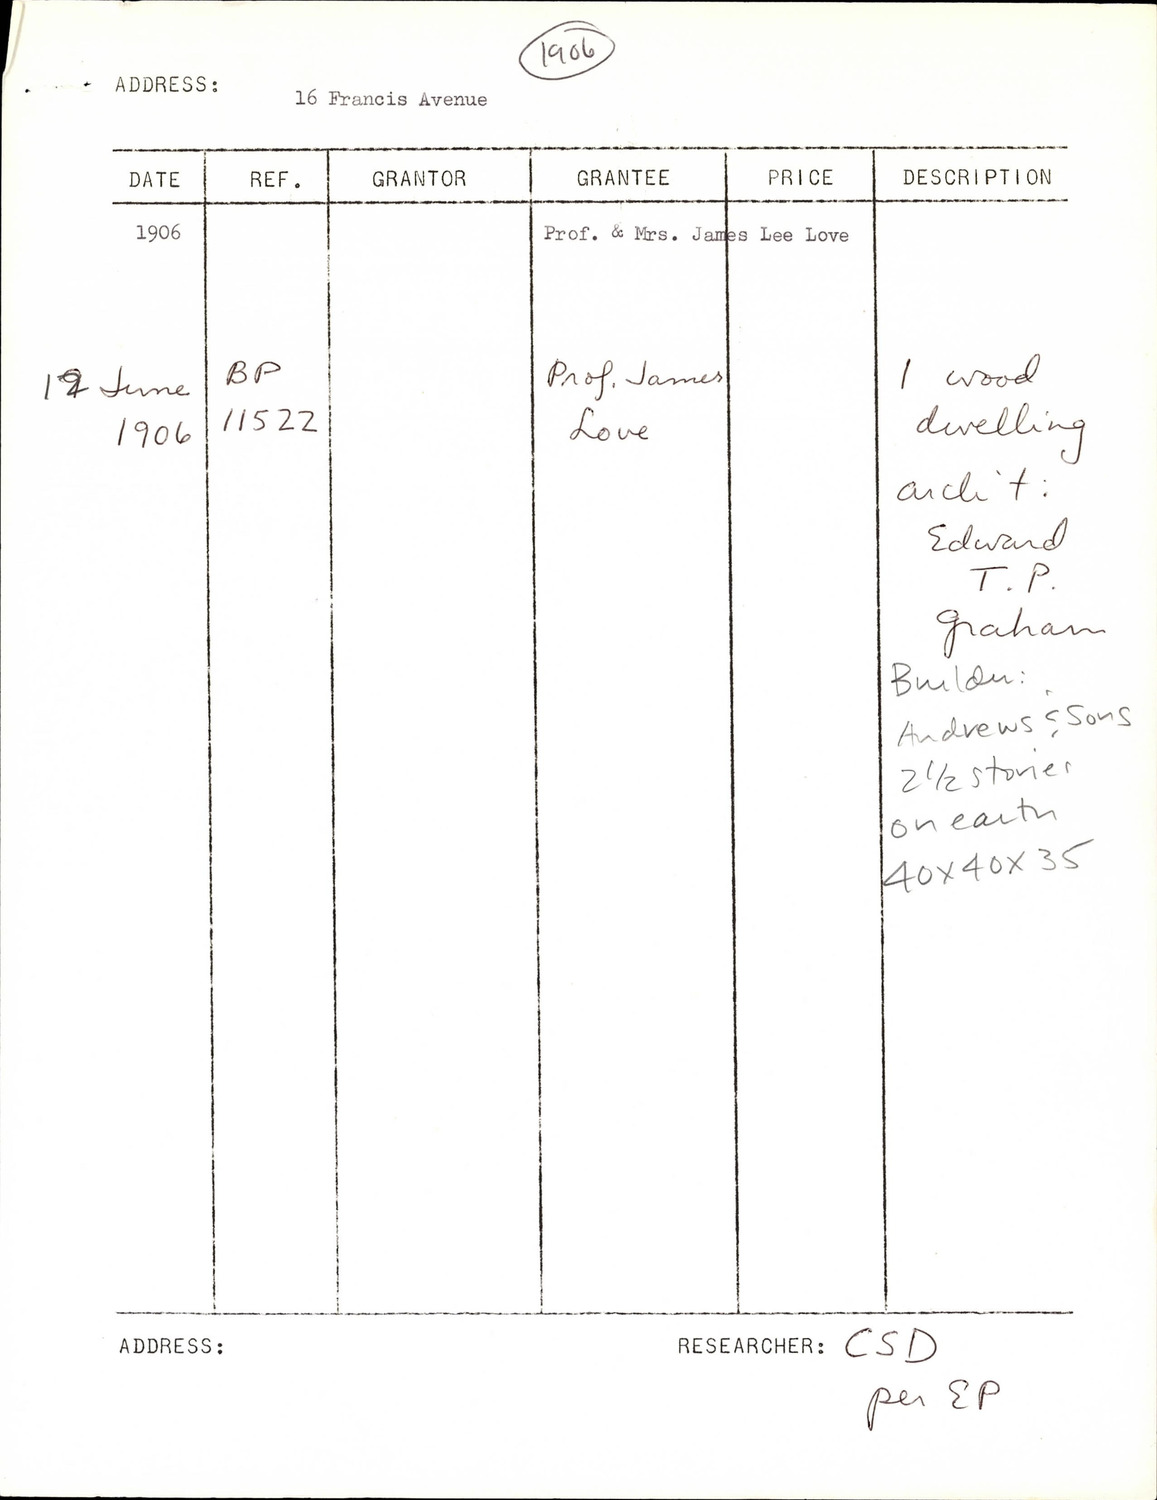 1906
ADDRESS:
16 Francis Avenue
DATE REF. GRANTOR GRANTEE PRICE DESCRIPTION
1906 Prof. & Mrs. James Lee Love
June BP Prof. James 1 wood
1906 11522 Love dwelling
archi't:
Edward
T. P.
Graham
Builder:
Andrews & Sons
2 1/2 stories
on earth
40x40x35
ADDRESS: RESEARCHER: CSD
per EP